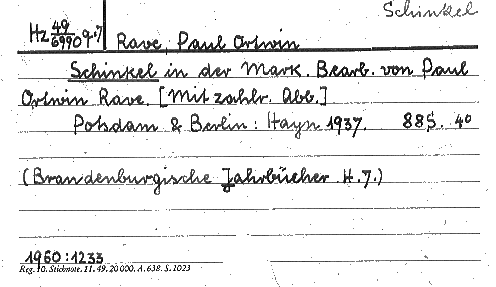 Schinkel
Hz 49/6990 q.7
Rave, Paul Ortwin
Schinkel in der Mark. Bearb. von Paul
Ortwin Rave. [Mit zahlr. Abb.]
Potsdam & Berlin: Hayn 1937. 88S. 4°
(Brandenburgische Jahrbücher H.7.)
1960:1233
Reg. 10. Stichnote. 11. 49. 20 000. A. 638. S. 1023